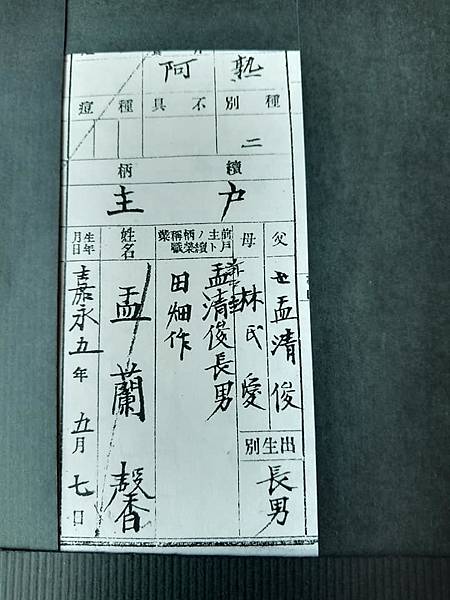 熟
阿
種別
不具
種痘
二
續柄
戶主
父
孟清俊
母
林氏愛
出生別
長男
前戶主トノ續柄榮稱職業
孟清俊長男
田畑作
姓名
孟蘭馨
生年月日
嘉永五年五月七日